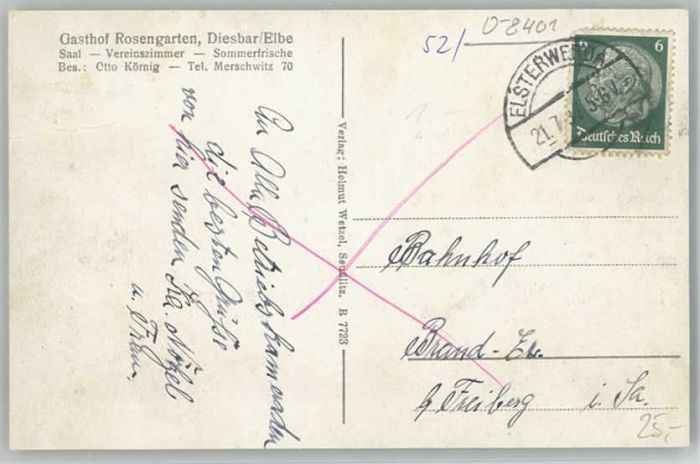 Gasthof Rosengarten, Diesbar/Elbe
Saal — Vereinszimmer — Sommerfrische
Bes.: Otto Körnig — Tel. Merschwitz 70
An Alle Betriebskameraden
die besten Grüße
von hier senden Ka. Nötzel
u. Frau.
Verlag: Helmut Wetzel, Seußlitz. R 7723
52/
D-8401
ELSTERWERDA
21.7.
6
Deutsches Reich
Bahnhof
Brand-Er.
b/ Freiberg i. Sa.
25,-